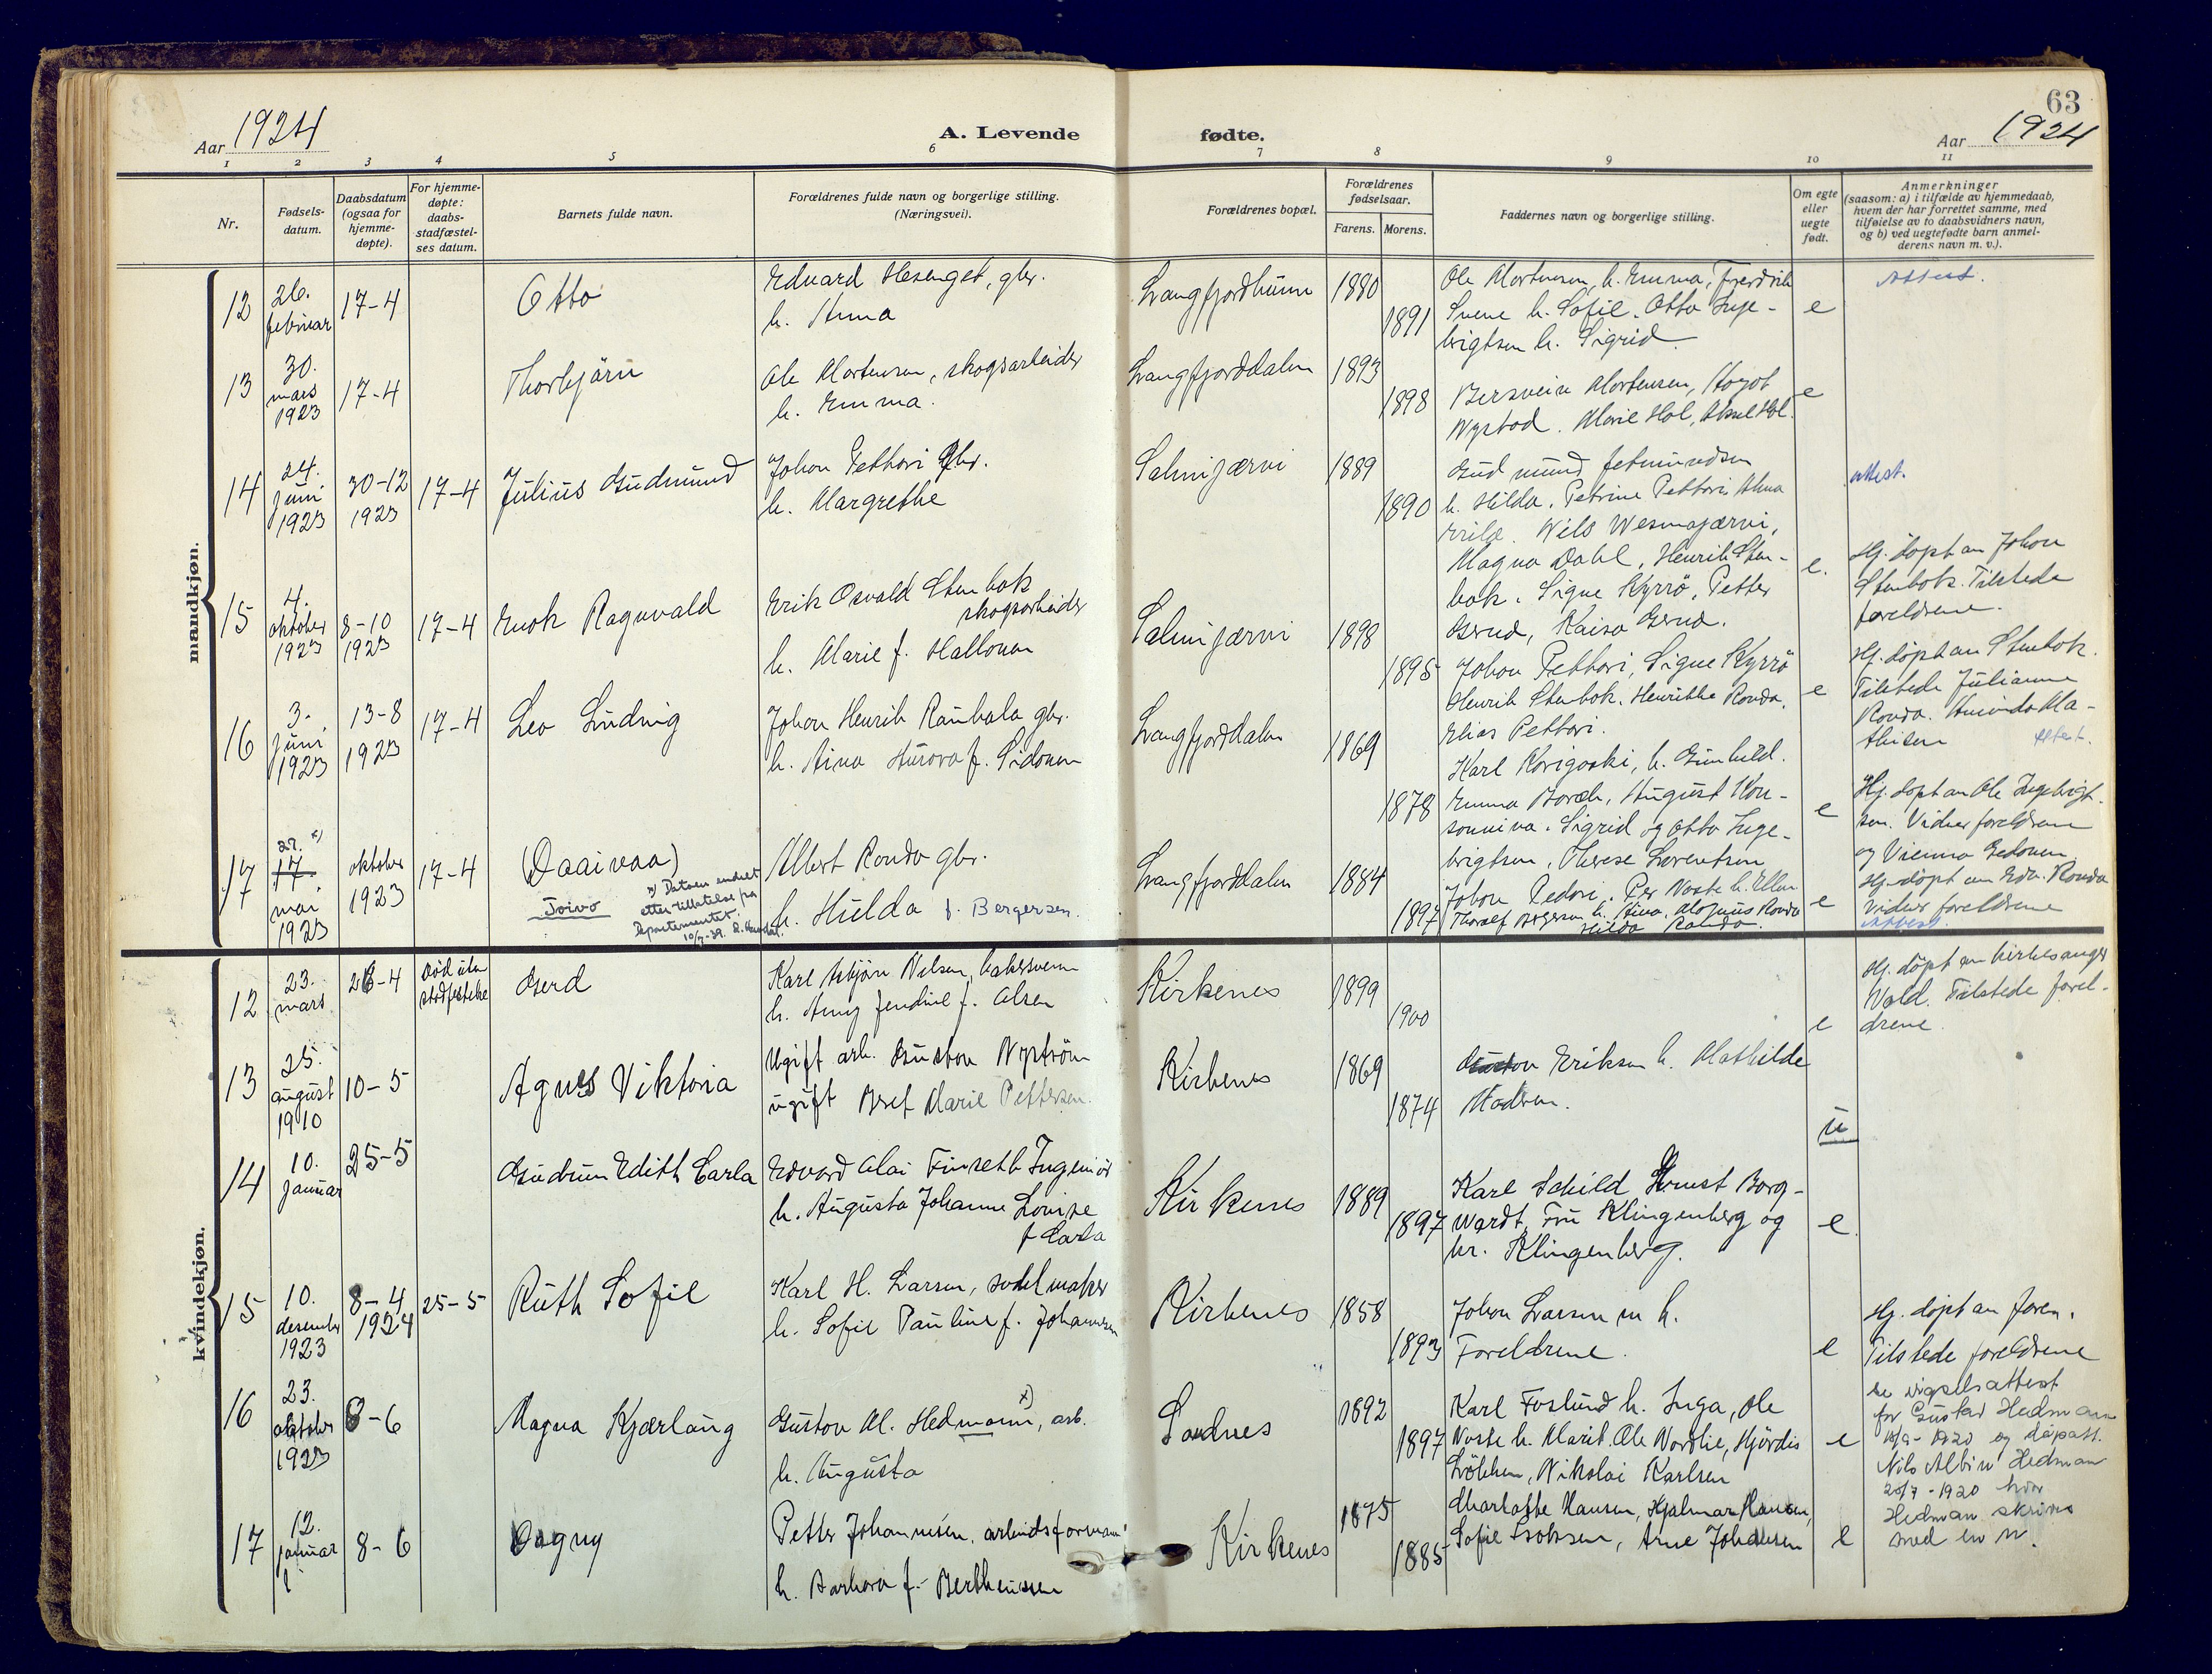 63
Aar 1924
A. Levende fødte.
Aar 1924
1 2 3 4 5 6 7 8 9 10 11
Nr.
Fødsels-
datum.
Daabsdatum
(ogsaa for
hjemme-
døpte).
For hjemme-
døpte:
daabs-
stadfæstel-
ses datum.
Barnets fulde navn.
Forældrenes fulde navn og borgerlige stilling.
(Næringsvei).
Forældrenes bopæl.
Forældrenes
fødselsaar.
Farens. Morens.
Faddernes navn og borgerlige stilling.
Om egte
eller
uegte
født.
Anmerkninger
(saasom: a) i tilfælde av hjemmedaab,
hvem der har forrettet samme, med
tilføielse av to daabsvidners navn,
og b) ved uegtefødte barn anmel-
derens navn m. v.).
mandkjøn.
12
26.
februar
17-4
Otto
Edvard Hesenget, gbr.
h. Anna
Langfjordbunn
1880
1891
Ole Mortensen, h. Emma, Fredrik
Svene h. Sofie. Otto Inge-
brigtsen h. Sigrid
e
Attest.
13
30.
mars
1923
17-4
Thorbjörn
Ole Mortensen, skogsarbeider
h. Emma.
Langfjorddalen
1893
1898
Bersvein Mortensen, August
Nystad. Marie Hol, Aksel Hol.
e
14
24.
juni
1923
30-12
1923
17-4
Julius Gudmund
Johan Petthari gbr.
h. Margrethe
Salmijærvi
1889
1890
Gudmund
h. Hilda. Petrine Petthari, Alma
Nils Wesmajærvi,
Magna Dahl, Henrik Sten-
bok. Signe Kyrrö, Petter
Gerud, Kaisa Gerud.
e.
attest.
Hj. döpt av Johan
Stenbok. Tilstede
foreldrene.
15
4.
oktober
1923
8-10
1923
17-4
Enok Ragnvald
Erik Osvald Stenbok
skogsarbeider
h. Marie f. Hallonen
Salmijærvi
1898
1895
Johan Petthari, Signe Kyrrö
Henrik Stenbok. Henrikke Ronda.
Elias Petthari.
e
Hj. döpt av Stenbok.
Tilstede Julianne
Ronda. Ma-
thisen
Attest.
16
3.
juni
1923
13-8
1923
17-4
Leo Ludvig
Johan Henrik Rauhala gbr.
h. Aina Aurora f. Sidonen
Langfjorddalen
1869
1878
Karl Korigoski, h. Gunhild.
Emma Boræh, August Kon-
Sigrid og Otto Inge-
brigtsen, Therese Lorentsen
e
Hj. döpt av Ole Ingebrigt-
sen. Vidner foreldrene
og Vienna
17
27. x)
17.
mai
1923
oktober
1923
17-4
(Daaivaa)
Toivo
x) Datoen endret
etter tillatelse fra
Departementet.
10/7-39.
Albert Ronda gbr.
h. Hulda f. Bergersen.
Langfjorddalen
1884
1897
Johan Per Naste h. Ellen
Thoralf Bergersen h. Aina. Magnus Ronda
Hilda Ronda.
e
Hj. döpt av Edv. Ronda
Vidner foreldrene
Attest.
kvindekjøn.
12
23.
mars
28-4
Död uten
stadfestelse
Gerd
Karl Asbjörn Nilsen, bakersvenn
h. Amy Jendine f. Olsen
Kirkenes
1899
1900
e
Hj. döpt av kirkesanger
Vold. Tilstede forel-
drene.
13
25.
august
1910
10-5
Agnes Viktoria
Ugift arb. Gustav Nyström
ugift Bret Marie Pettersen.
Kirkenes
1869
1874
Gustav Eriksen h. Mathilde
Modren.
u
14
10.
januar
25-5
Gudrun Edith Carla
Edvard Olai Finseth Ingeniör
h. Augusta Johanne Lovise
f
Kirkenes
1889
1897
Karl Schild Ernst Borg-
wardt, Fru Klingenberg og
hr. Klingenberg.
e
15
10.
desember
1923
8-4
1924
25-5
Ruth Sofie
Karl H. Larsen, sadelmaker
h. Sofie Pauline f. Johannesen
Kirkenes
1858
1893
Johan Larsen m h.
Foreldrene.
e
Hj. döpt av faren.
Tilstede foreldrene
16
23.
oktober
1923
8-6
Magna Kjærlaug
Gustav Al. Hedmann x), arb.
h. Augusta
Sandnes
1892
1897
Karl Foslund h. Inga, Ole
Naste h. Marit. Ole Nordlie, Hjördis
Lökken, Nikolai Karlsen
e
se vigselsattest
for Gustav Hedman
1920 og dåpsatt.
Nils Albin Hedman
25/7-1920 hvor
Hedman skrives
med en n.
17
12.
januar
8-6
Dagny
Petter Johannesen, arbeidsformann
h. Barbara f. Berthinsen
Kirkenes
1875
1885
Charlotte Hansen, Hjalmar Hansen,
Sofie Isaksen, Arne Johansen
e